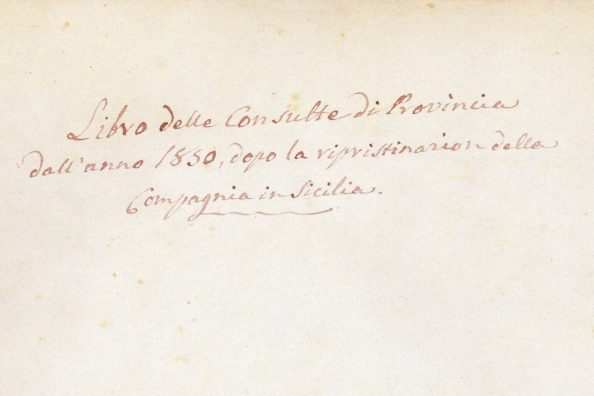 Libro delle Consulte di Provincia
dall'anno 1850, dopo la ripristinazion della
Compagnia in Sicilia.